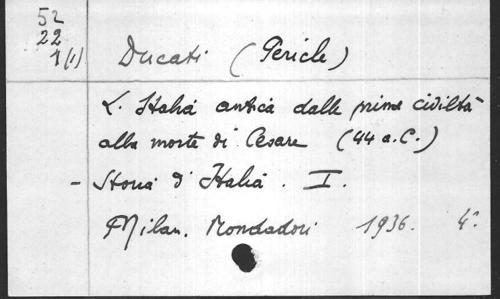 52
22
1(1)
Ducati (Pericle)
L'Italia antica dalle prime civiltà
alla morte di Cesare (44 a.C.)
- Storia d'Italia. I.
Milan. Mondadori 1936. 4°